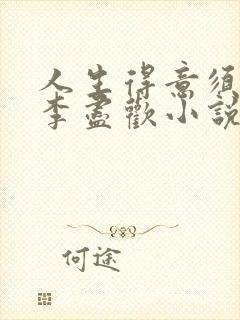 人生得意须
李盡歡小說
何途